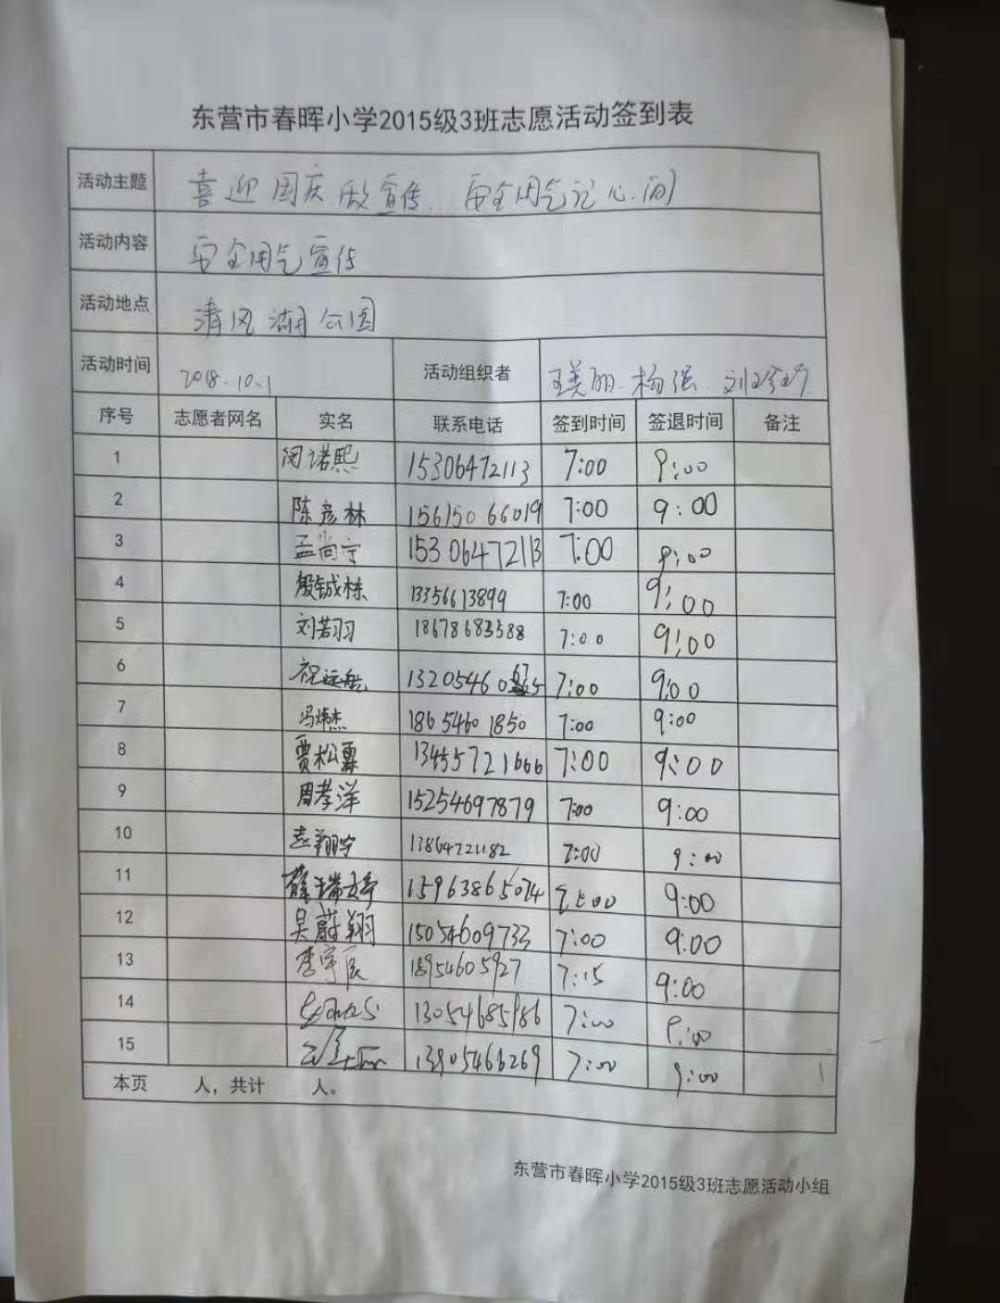 东营市春晖小学2015级3班志愿活动签到表
活动主题 喜迎国庆做宣传 安全用气记心间
活动内容 安全用气宣传
活动地点 清风湖公园
活动时间 2018.10.1 活动组织者 王美丽. 杨强.
序号 志愿者网名 实名 联系电话 签到时间 签退时间 备注
1 闵诺熙 15306472113 7:00 9:00
2 陈彦林 15615066019 7:00 9:00
3 孟尚宁 15306472113 7:00 9:00
4 殷铖栋 13356613899 7:00 9:00
5 刘若羽 18678683588 7:00 9:00
6 祝运航 7:00 9:00
7 18654601850 7:00 9:00
8 贾松霖 13455721666 7:00 9:00
9 周孝洋 15254697879 7:00 9:00
10 13864721182 7:00 9:00
11 薛瑞婷 15963865074 9:00
12 吴蔚翔 15054609733 7:00 9:00
13 李宇辰 18954605927 7:15 9:00
14 13054685986 7:00 9:00
15 13905466269 7:00 9:00
本页 人，共计 人。
东营市春晖小学2015级3班志愿活动小组